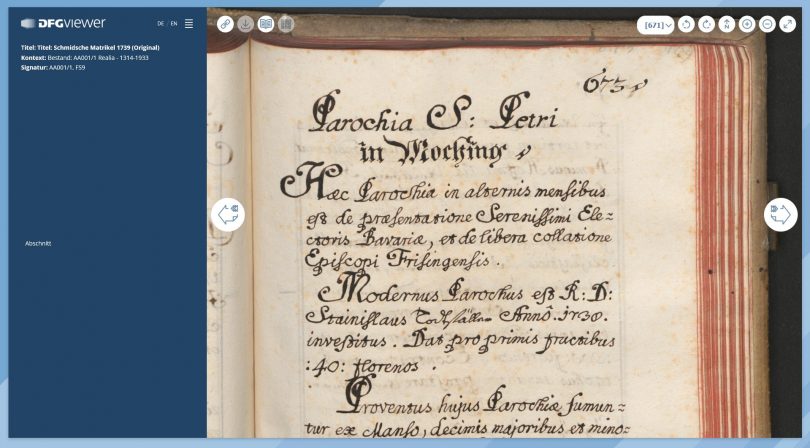 DFGVIEWER
DE | EN
Titel: Titel: Schmidsche Matrikel 1739 (Original)
Kontext: Bestand: AA001/1 Realia - 1314-1933
Signatur: AA001/1, F59
Abschnitt
[671]
N
673
Parochia S: Petri
in Moching
Hæc Parochia in alternis mensibus
est de præsentatione Serenissimi Ele=
ctoris Bavariæ, et de libera collatione
Episcopi Frisingensis.
Modernus Parochus est R: D:
Stainislaus Anno. 1730.
investitus. Dat pro primis fructibus
:40: florenos.
Proventus hujus Parochiæ sumun=
tur ex Manso, decimis majoribus et mino=